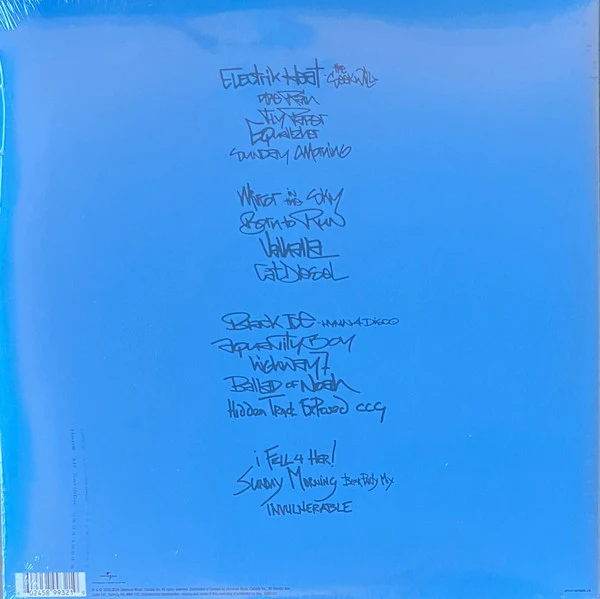 Electrik Heat - the Seekwill
One Ton
Tiny Robot
Equalizher
Sunday Morning
Mirror in the Sky
Born to Run
Valhalla
Cat Diesel
Black Ice - Hymn 4 Disco
Aquacity Boy
Highway 7
Ballad of Noah
Hidden Track Exposed CCG
i Fell 4 Her!
Sunday Morning Boat Party Mix
Invulnerable